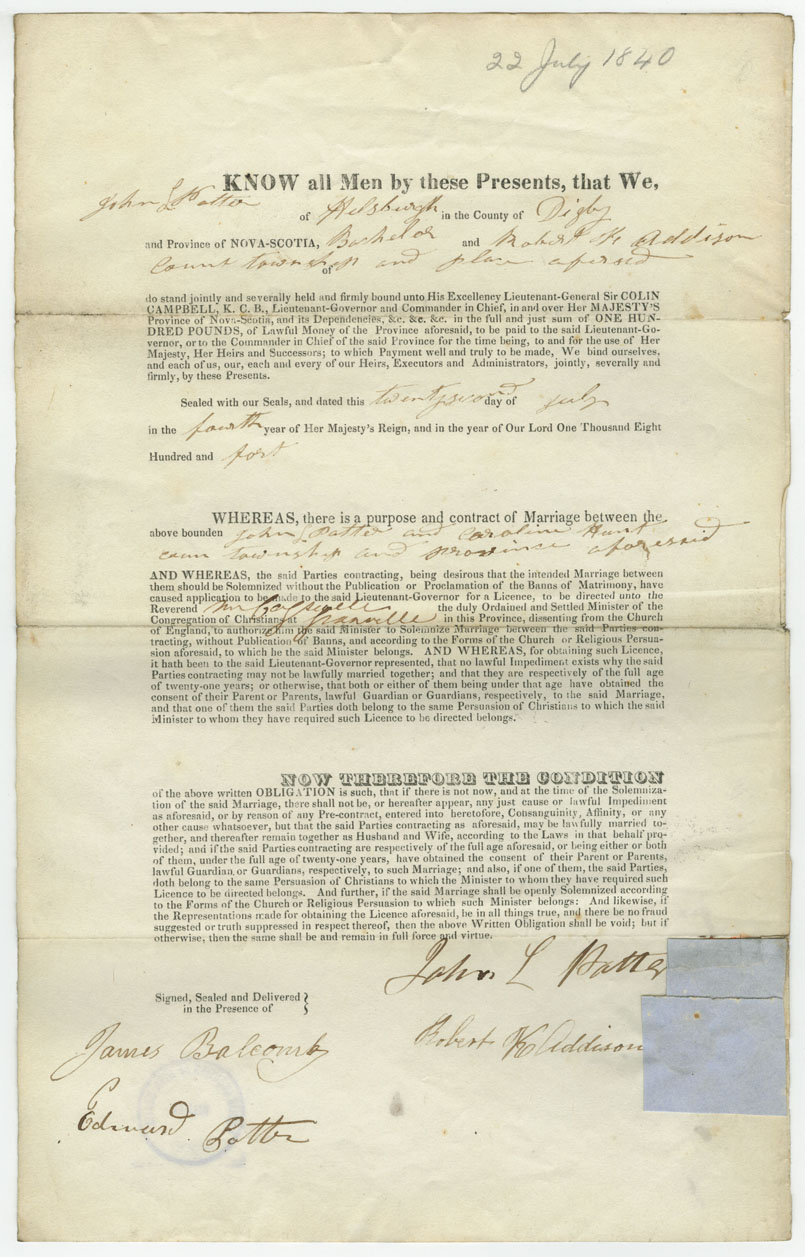 22 July 1840
KNOW all Men by these Presents, that We,
John L Potter
of Hilsburgh in the County of Digby
and Province of NOVA-SCOTIA, Bachelor and Robert K Addison
of township and place aforesaid
do stand jointly and severally held and firmly bound unto His Excellency Lieutenant-General Sir COLIN
CAMPBELL, K. C. B., Lieutenant-Governor and Commander in Chief, in and over Her MAJESTY'S
Province of Nova-Scotia, and its Dependencies, &c. &c. &c. in the full and just sum of ONE HUN-
DRED POUNDS, of Lawful Money of the Province aforesaid, to be paid to the said Lieutenant-Go-
vernor, or to the Commander in Chief of the said Province for the time being, to and for the use of Her
Majesty, Her Heirs and Successors; to which Payment well and truly to be made, We bind ourselves,
and each of us, our, each and every of our Heirs, Executors and Administrators, jointly, severally and
firmly, by these Presents.
Sealed with our Seals, and dated this day of July
in the fourth year of Her Majesty's Reign, and in the year of Our Lord One Thousand Eight
Hundred and fort
WHEREAS, there is a purpose and contract of Marriage between the
above bounden John L Potter and Caroline Hunt
township and province aforesaid
AND WHEREAS, the said Parties contracting, being desirous that the intended Marriage between
them should be Solemnized without the Publication or Proclamation of the Banns of Matrimony, have
caused application to be made to the said Lieutenant-Governor for a Licence, to be directed unto the
Reverend the duly Ordained and Settled Minister of the
Congregation of Christians at Granville in this Province, dissenting from the Church
of England, to authorize him the said Minister to Solemnize Marriage between the said Parties con-
tracting, without Publication of Banns, and according to the Forms of the Church or Religious Persua-
sion aforesaid, to which he the said Minister belongs. AND WHEREAS, for obtaining such Licence,
it hath been to the said Lieutenant-Governor represented, that no lawful Impediment exists why the said
Parties contracting may not be lawfully married together; and that they are respectively of the full age
of twenty-one years; or otherwise, that both or either of them being under that age have obtained the
consent of their Parent or Parents, lawful Guardian or Guardians, respectively, to the said Marriage,
and that one of them the said Parties doth belong to the same Persuasion of Christians to which the said
Minister to whom they have required such Licence to be directed belongs.
NOW THEREFORE THE CONDITION
of the above written OBLIGATION is such, that if there is not now, and at the time of the Solemniza-
tion of the said Marriage, there shall not be, or hereafter appear, any just cause or lawful Impediment
as aforesaid, or by reason of any Pre-contract, entered into heretofore, Consanguinity, Affinity, or any
other cause whatsoever, but that the said Parties contracting as aforesaid, may be lawfully married to-
gether, and thereafter remain together as Husband and Wife, according to the Laws in that behalf pro-
vided; and if the said Parties contracting are respectively of the full age aforesaid, or being either or both
of them, under the full age of twenty-one years, have obtained the consent of their Parent or Parents,
lawful Guardian or Guardians, respectively, to such Marriage; and also, if one of them, the said Parties,
doth belong to the same Persuasion of Christians to which the Minister to whom they have required such
Licence to be directed belongs. And further, if the said Marriage shall be openly Solemnized according
to the Forms of the Church or Religious Persuasion to which such Minister belongs: And likewise, if
the Representations made for obtaining the Licence aforesaid, be in all things true, and there be no fraud
suggested or truth suppressed in respect thereof, then the above Written Obligation shall be void; but if
otherwise, then the same shall be and remain in full force and virtue.
John L Potter
Signed, Sealed and Delivered
in the Presence of
Robert K Addison
James Balcomb
Edward Potter